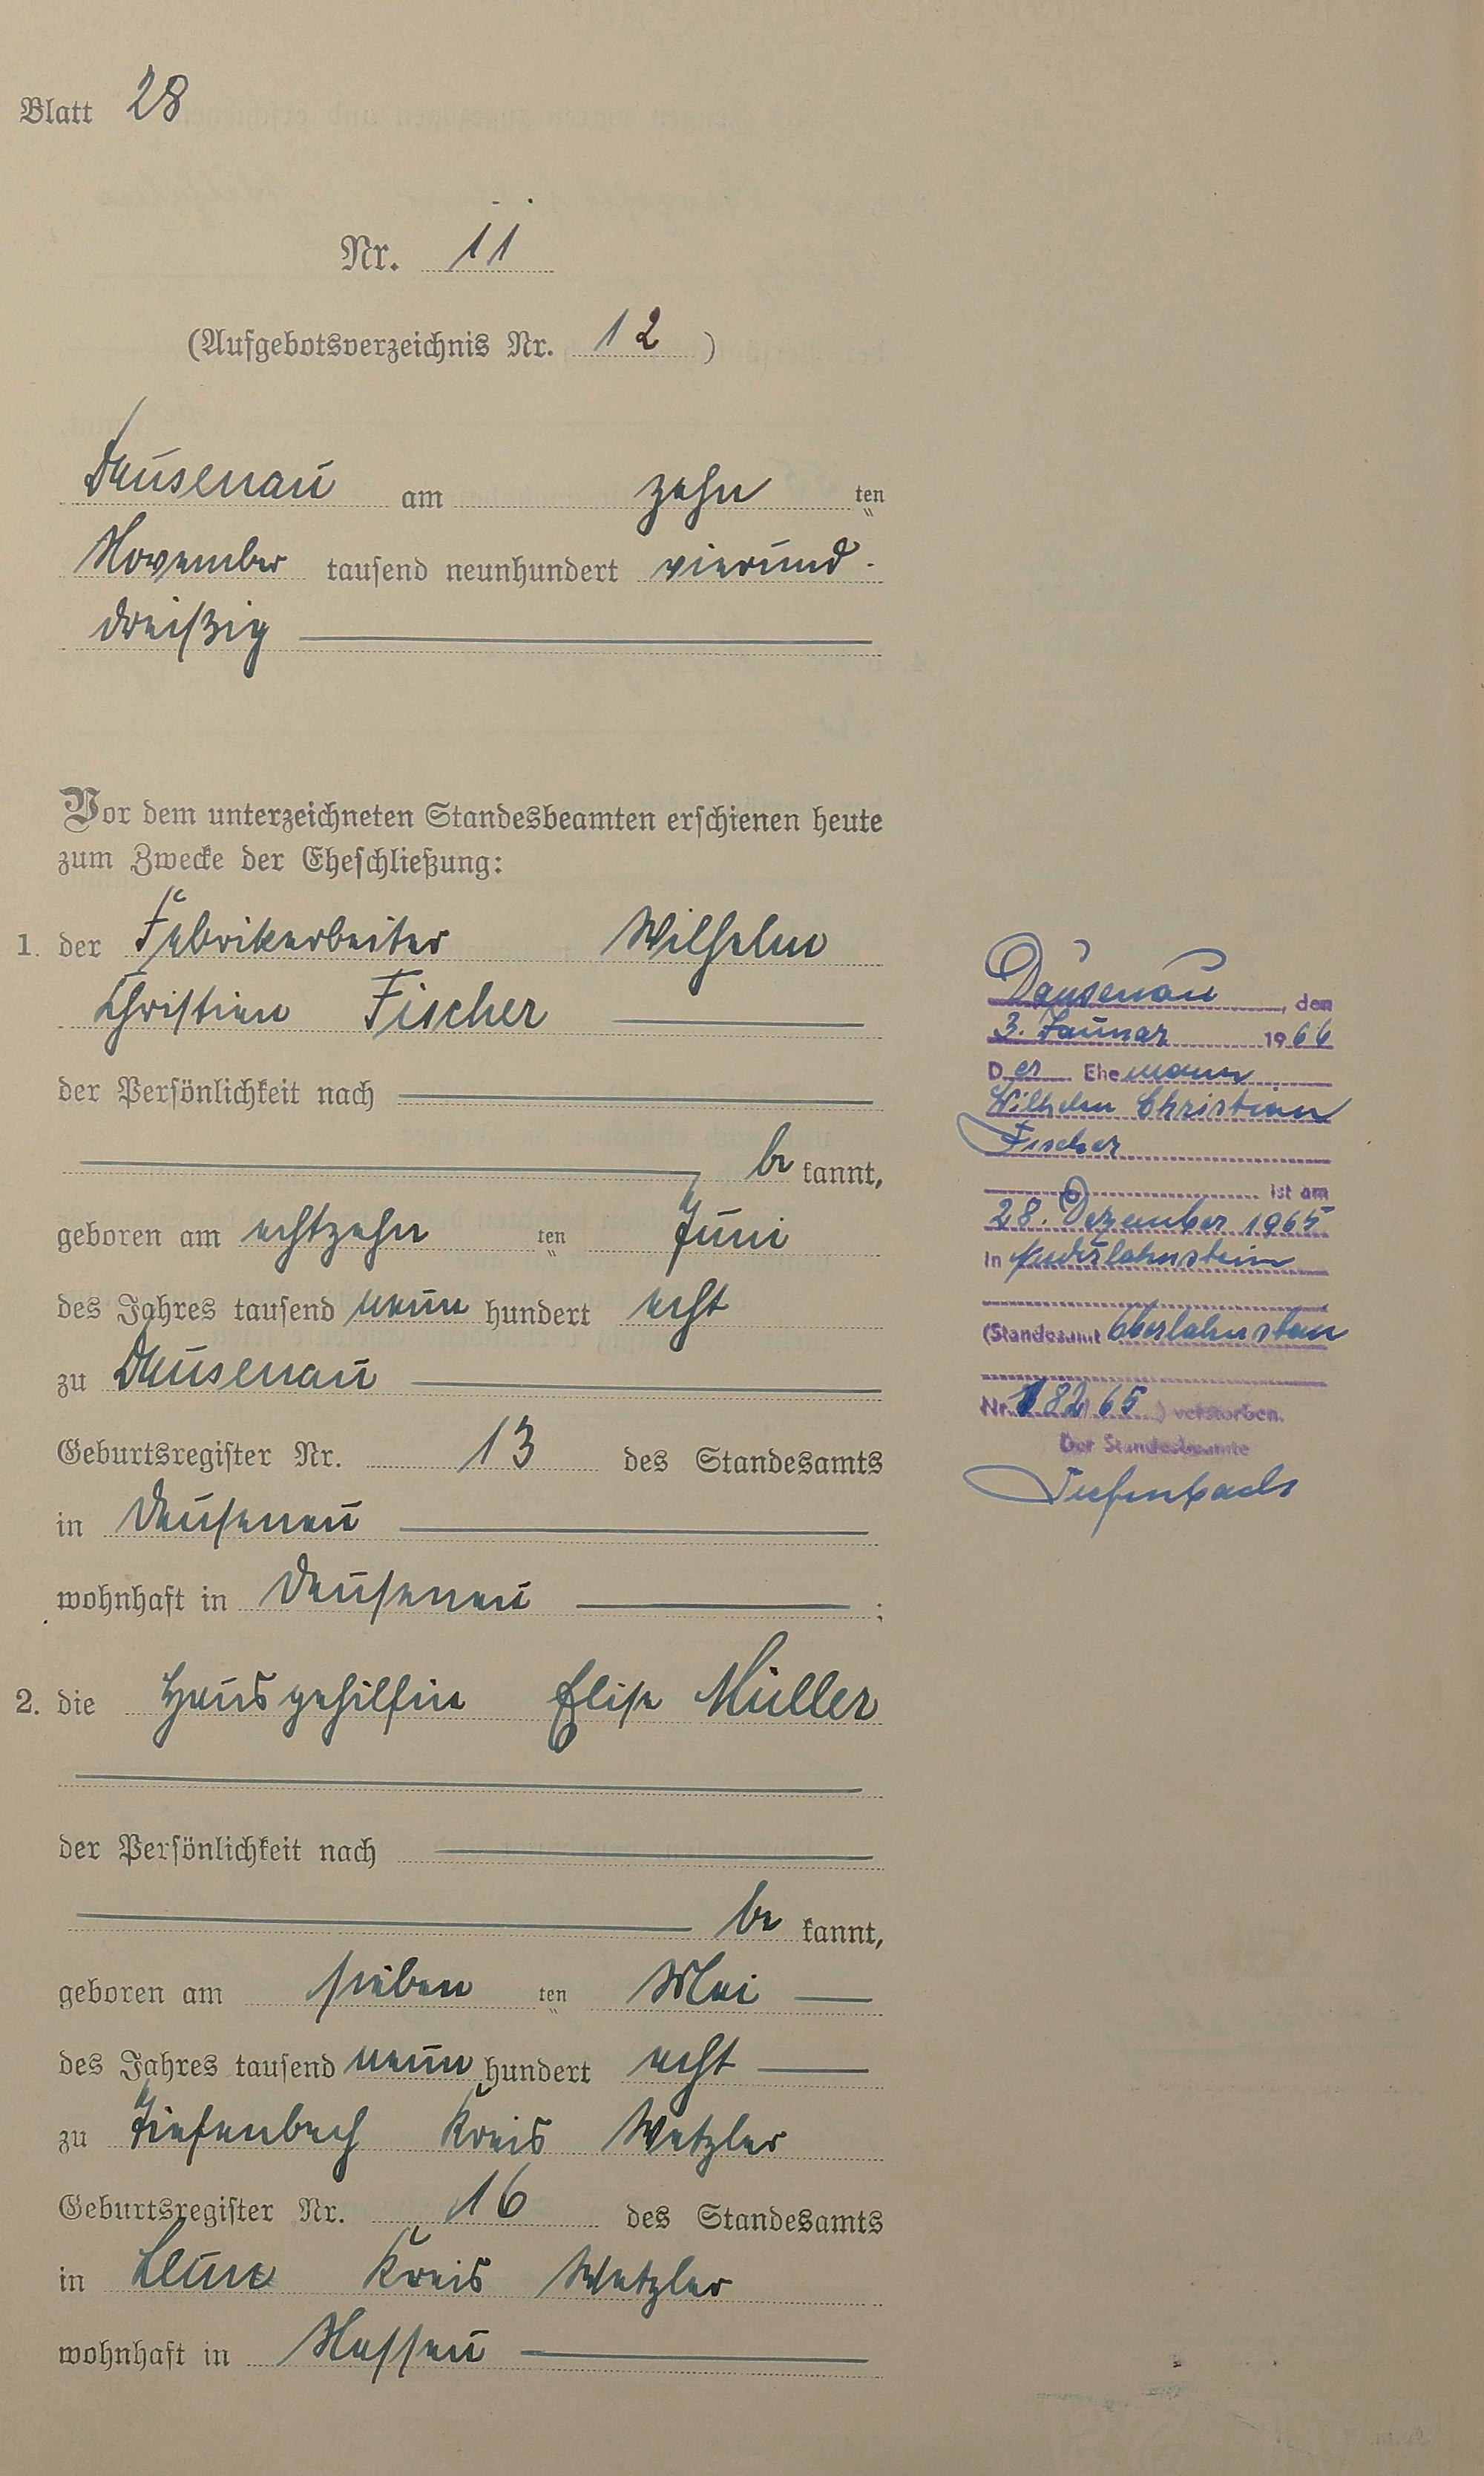 Blatt 28
Nr. 11
(Aufgebotsverzeichnis Nr. 12 )
Dausenau am zehn ten
November tausend neunhundert vierund-
dreißig
Vor dem unterzeichneten Standesbeamten erschienen heute
zum Zwecke der Eheschließung:
1. der Fabrikarbeiter Wilhelm
Christian Fischer
der Persönlichkeit nach
be kannt,
geboren am achtzehn ten Juni
des Jahres tausend neun hundert acht
zu Dausenau
Geburtsregister Nr. 13 des Standesamts
in Dausenau
wohnhaft in Dausenau ;
2. die Hausgehilfin Elise Müller
der Persönlichkeit nach
be kannt,
geboren am sieben ten Mai
des Jahres tausend neun hundert acht
zu Tiefenbach Kreis Wetzlar
Geburtsregister Nr. 16 des Standesamts
in Leun Kreis Wetzlar
wohnhaft in Nassau
Dausenau, den
3. Januar 1966
Der Ehemann
Wilhelm Christian
Fischer
ist am
28. Dezember 1965
in Niederlahnstein
(Standesamt Oberlahnstein
Nr. 182/65 ) verstorben.
Der Standesbeamte